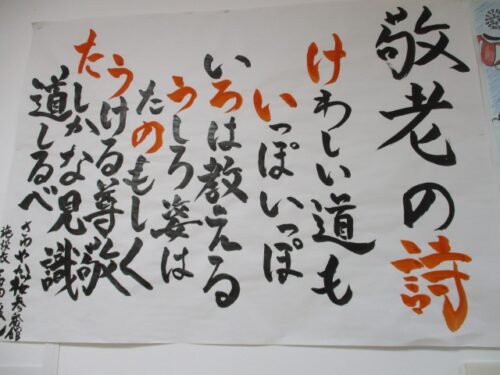 敬老の詩
けわしい道も
いっぽいっぽ
いろは教える
うしろ姿は
たのもしく
うける尊敬
たしかな見識
道しるべ
さわやか桜弐番館
施設長